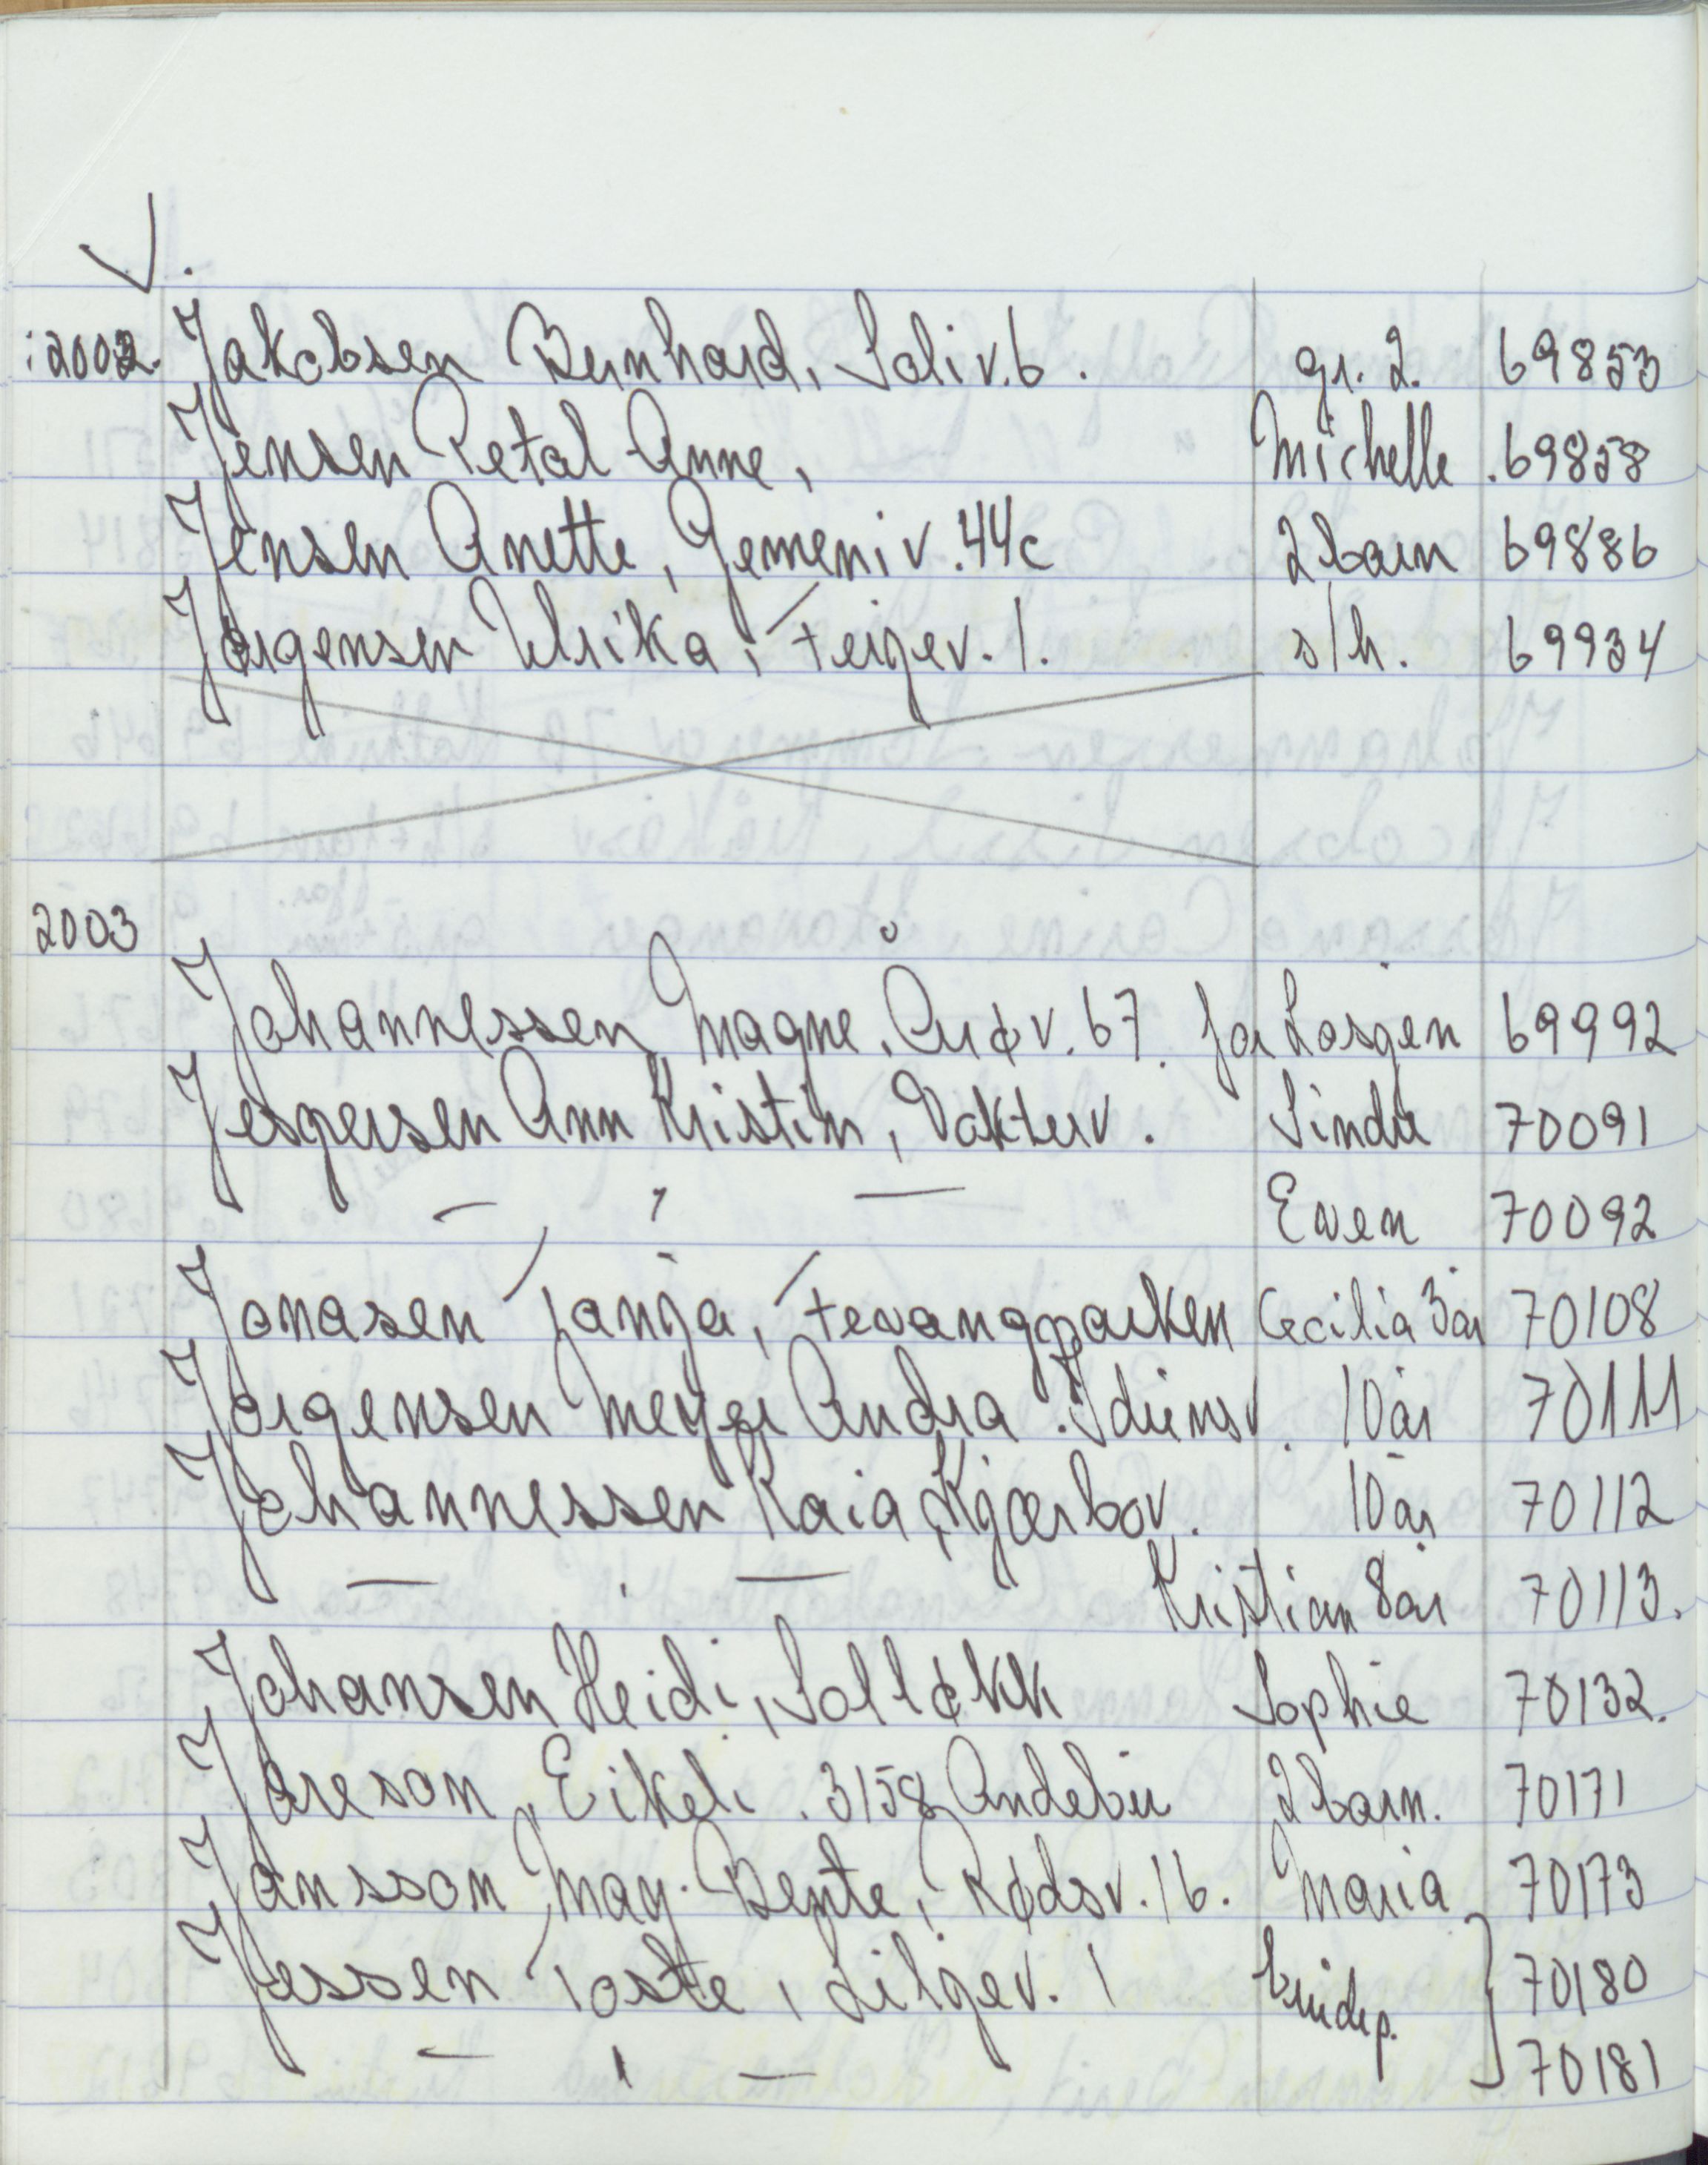 J.
:2002. Jakobsen Bernhard, Soliv. 6. gr. 2. 69853
Jensen Petal Anne, Michelle. 69858
Jensen Anette, Gemeniv. 44c 2 barn 69886
Jørgensen Ulrika, Teigev. 1. s/h. 69934
2003
Johannessen Magne. Auøv. 67. for Lasgen 69992
Jespersen Ann Kristin, Vakterv. Sindre 70091
— , — Even 70092
Jonasen Tanja, Tevangparken Cecilia 3 år 70108
Jørgensen Meyer Andrea. Idunsv. 10 år 70111
Johannessen Kaia, Kjærbov. 10 år 70112
— . — Kristian 8 år 70113.
Johansen Heidi, Solløkk Sophie 70132.
Jareson, Eikeli. 3158 Andebu 2 barn. 70171
Jansson May-Bente, Rødsv. 16. Maria 70173
Jessen Toste, Liljev. 1 brudep. 70180
— , — 70181